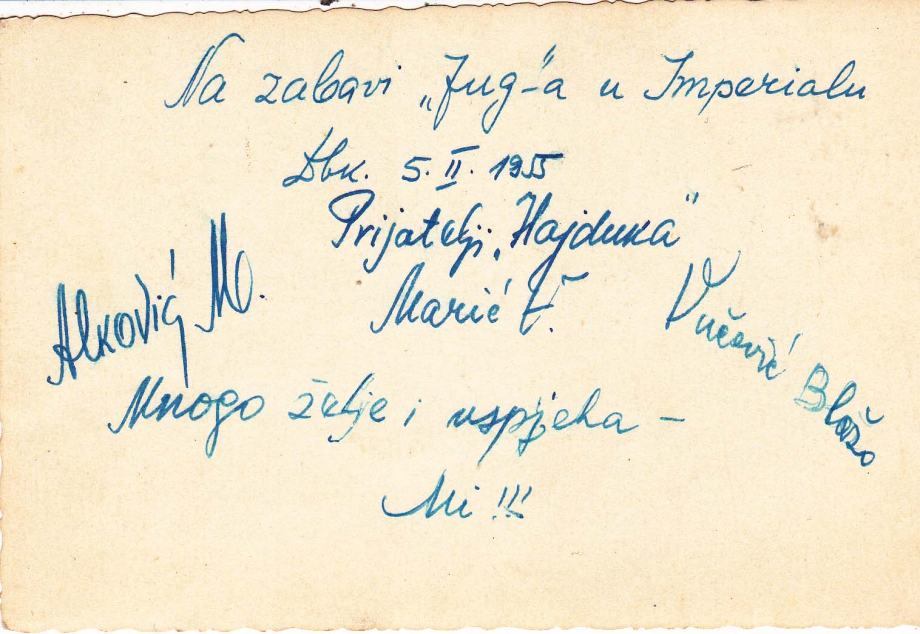 Na zabavi „Jug“-a u Imperialu
Dbk. 5. II. 1955
Prijatelji „Hajduka“
Alković M.
Marić F.
Vučović Blažo
Mnogo želje i uspjeha –
Mi !!!